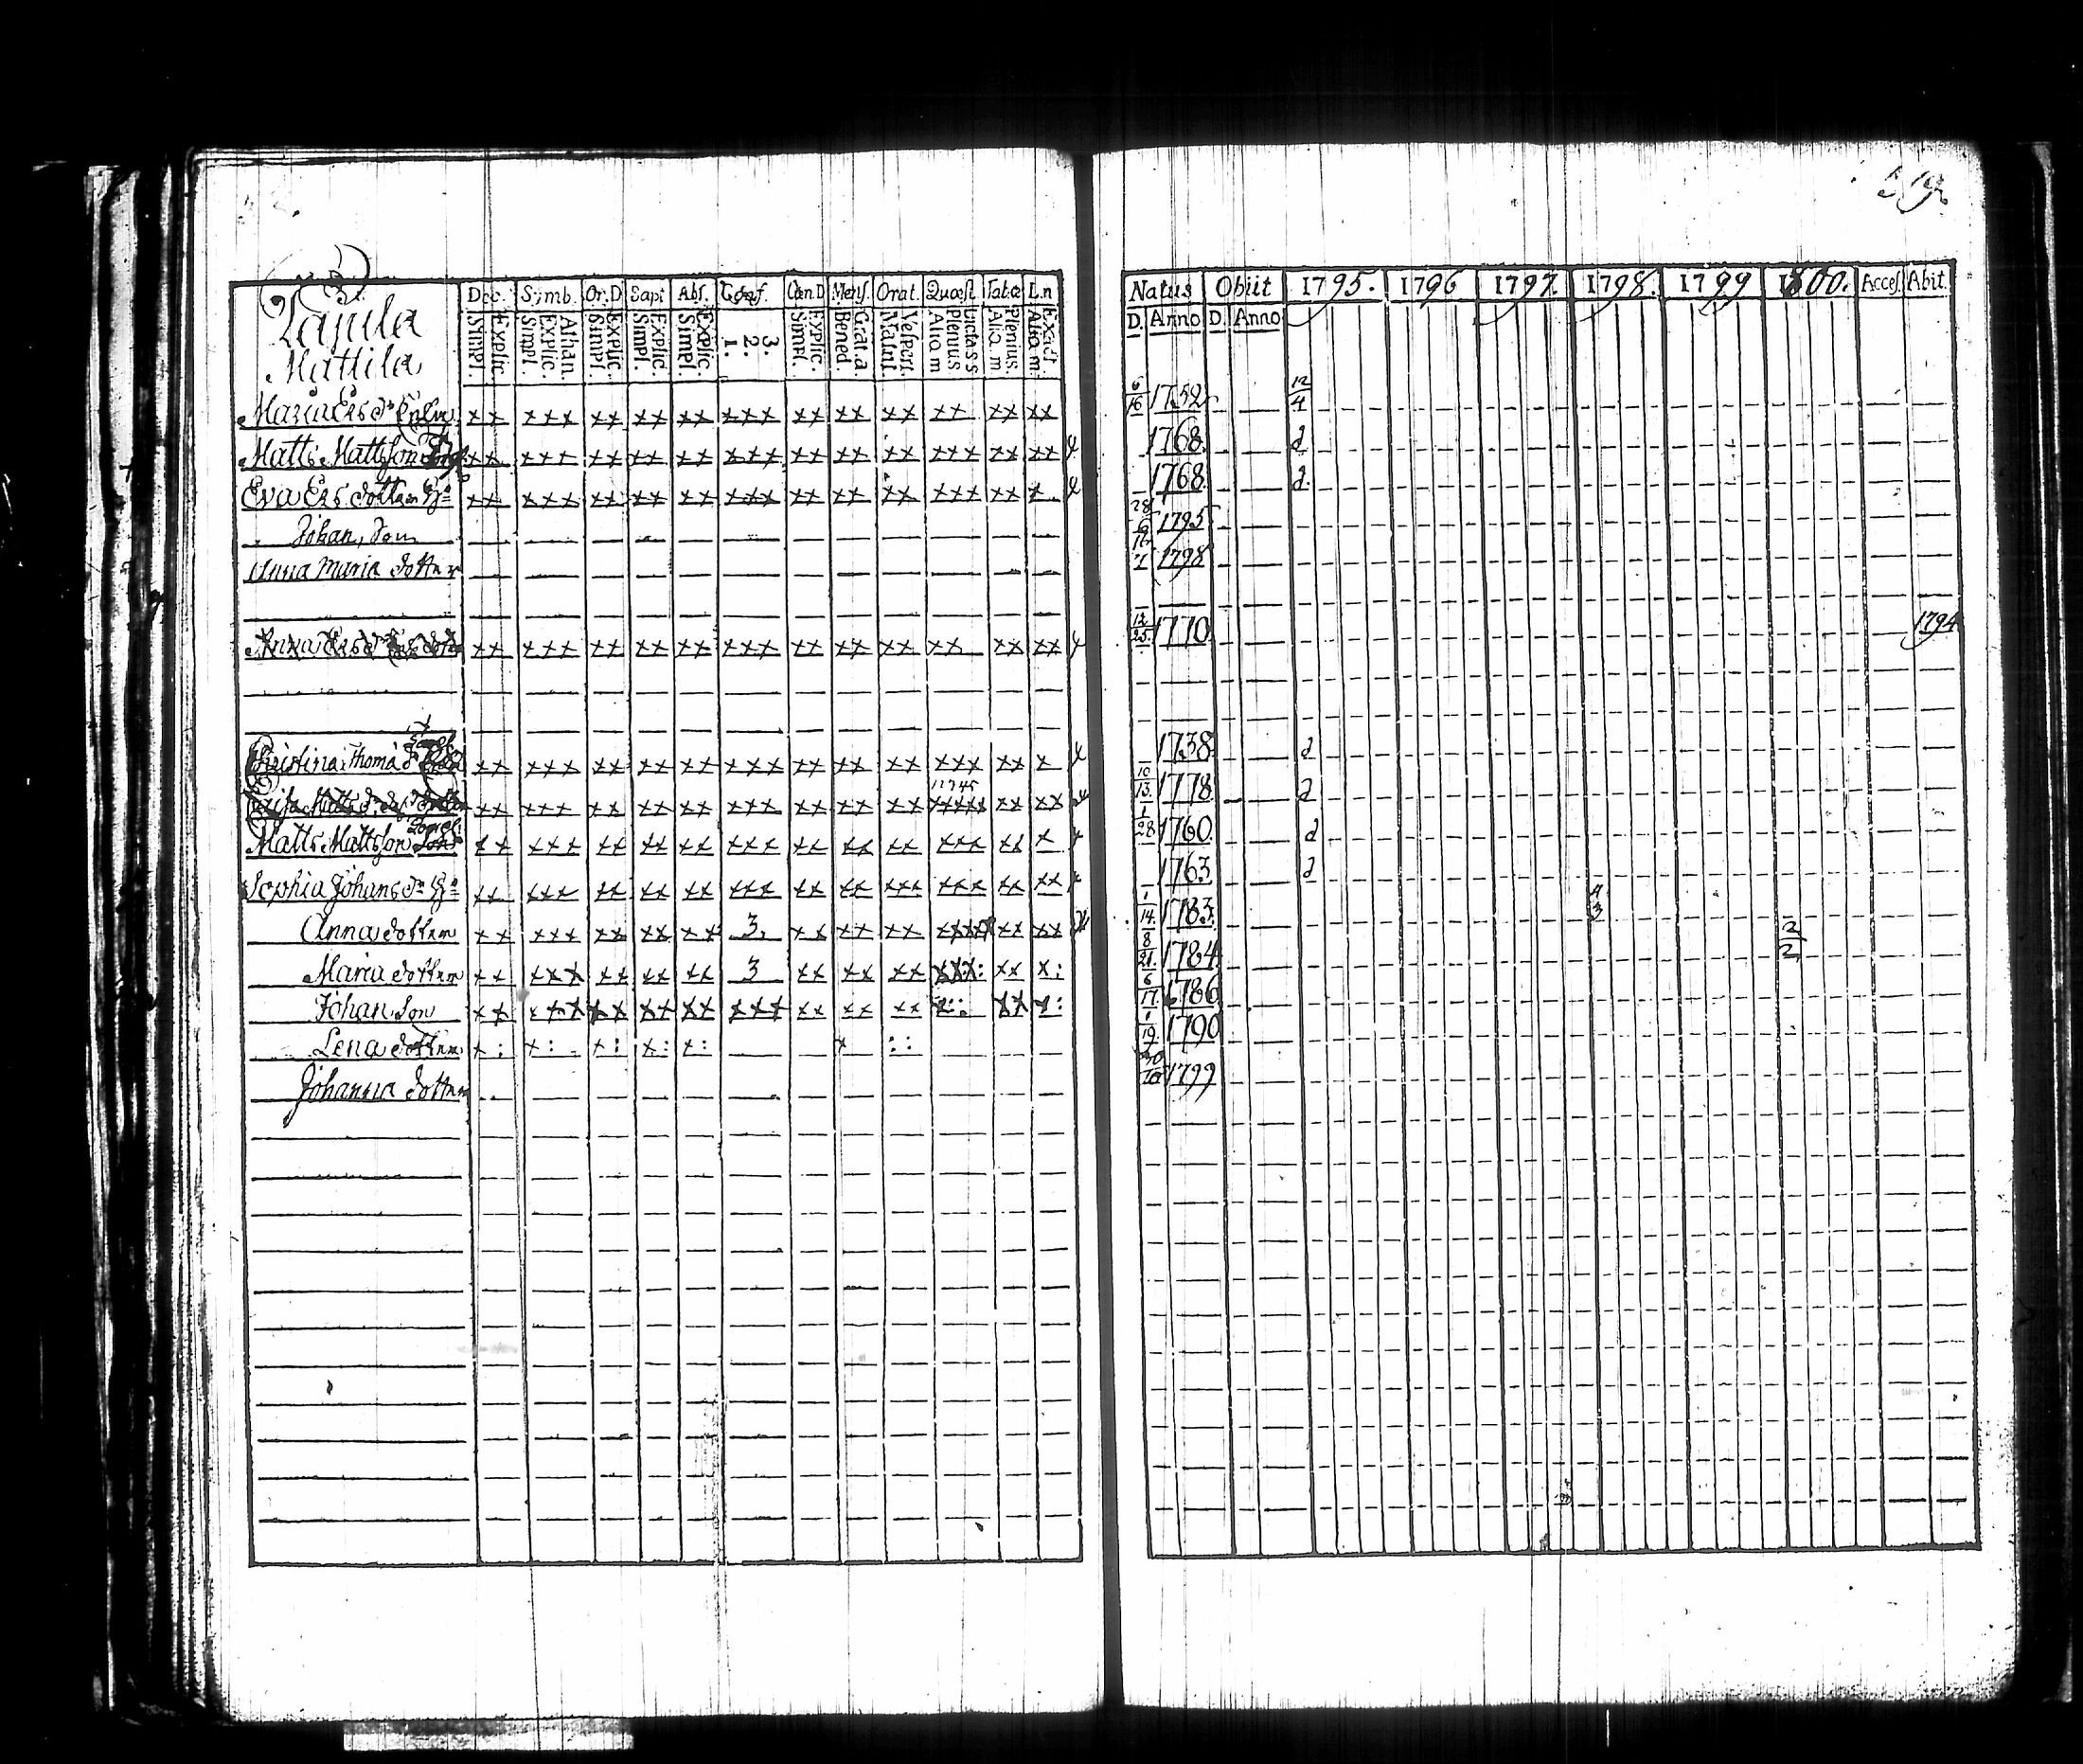 519.
Mattila
Dec. Symb. Or.D Sapt Abs. Confes. Cœn.D Mens. Orat. Quæst. Tabæ L.n
Simpl. Explic. Simpl. Explic. Athan. Simpl. Explic. Simpl. Explic. Simpl. Explic. 1. 2. 3. Simpl. Explic. Bened. Grat.a Matut. Vespert. Aliq.m Plenius Dicta s s Aliq.m Plenius. Aliq.m Exact.
Natus Obiit 1795. 1796 1797. 1798. 1799 1800. Acces. Abit.
D. Anno D. Anno
Maria Ers dr Enka xx xxx xx xx xx xxx xx xx xx xx xx xx 6/16 1752 12/4
Matts Mattsson xx xxx xx xx xx xxx xx xx xx xxx xx xx 1768. d
Eva Ers dotter H:o xx xxx xx xx xx xxx xx xx xx xxx xx x 1768. d.
Johan, Son 28/6 1795
Anna Maria dotter 1798
Anna Ers dr xx xxx xx xx xx xxx xx xx xx xx xx xx 12/25 1770 1794
Christina Thomæ dr xx xxx xx xx xx xxx xx xx xx xxx xx x 1738 d
Matts dr xx xxx xx xx xx xxx xx xx xx xxxxx xx xx 10/13 1778 d
Matts Mattsson xx xxx xx xx xx xxx xx xx xx xxx xx x 1/28 1760. d
Sophia Johans dr H:o xx xxx xx xx xx xxx xx xx xxx xxx xx xx 1763 d
Anna dotter xx xxx xx xx xx 3. xx xx xx xxxx xx xx 1/14 1783. 4/3
Maria dotter xx xxx xx xx xx 3 xx xx xx xxx: xx x: 8/21 1784 2/2
Johan Son xx xxx xx xx xx xxx xx xx xx x:: xx x: 6/17 1786
Lena dotter x: x: x: x: x: x :: 1/19 1790
Johanna dotter 30/10 1799